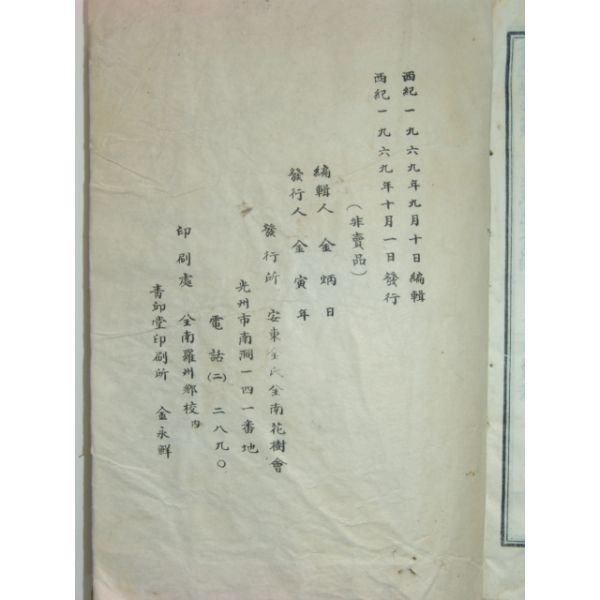 西紀一九六九年九月十日編輯
西紀一九六九年十月一日發行
(非賣品)
編輯人 金炳日
發行人 金寅年
發行所 安東金氏全南花樹會
光州市南洞一四一番地
電話(二)二八九〇
印刷處 全南羅州鄕校內
靑印堂印刷所 金永鮮